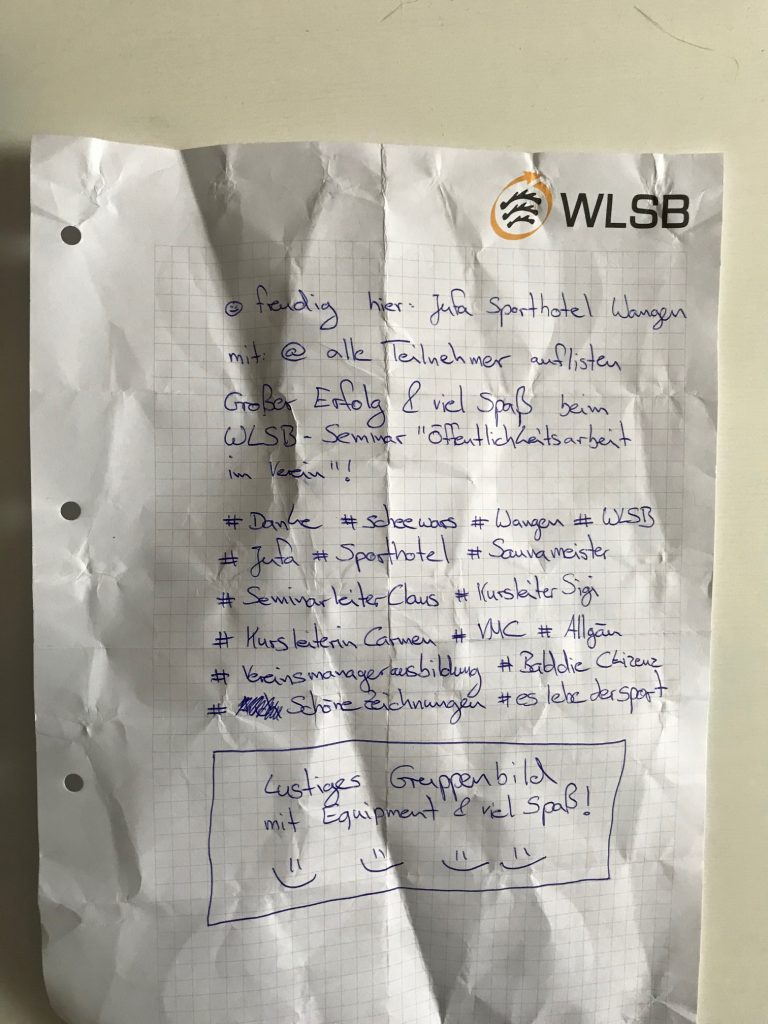 WLSB
☺ freudig hier: Jufa Sporthotel Wangen
mit: @ alle Teilnehmer auflisten
Großer Erfolg & viel Spaß beim
WLSB - Seminar "Öffentlichkeitsarbeit
im Verein"!
# Danke # scheewars # Wangen # WLSB
# Jufa # Sporthotel # Saunameister
# Seminarleiter Claus # Kursleiter Sigi
# Kursleiterin Carmen # VMC # Allgäu
# Vereinsmanagerausbildung #
# Schöne Zeichnungen # es lebe der sport
Lustiges Gruppenbild
mit Equipment & viel Spaß!